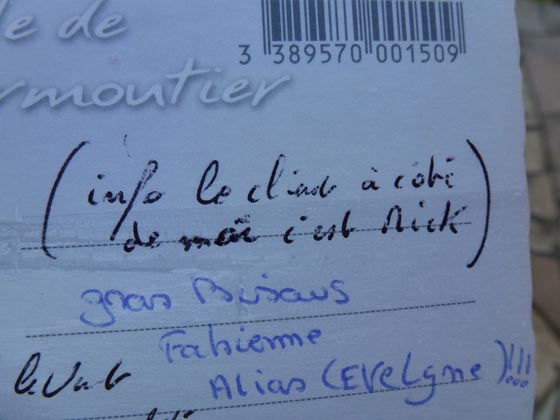 le de
3 389570 001509
rmoutier
(info le client à côté
de moi c'est Mick)
gros Bisous
Fabienne
Alias (Evelyne)!!!